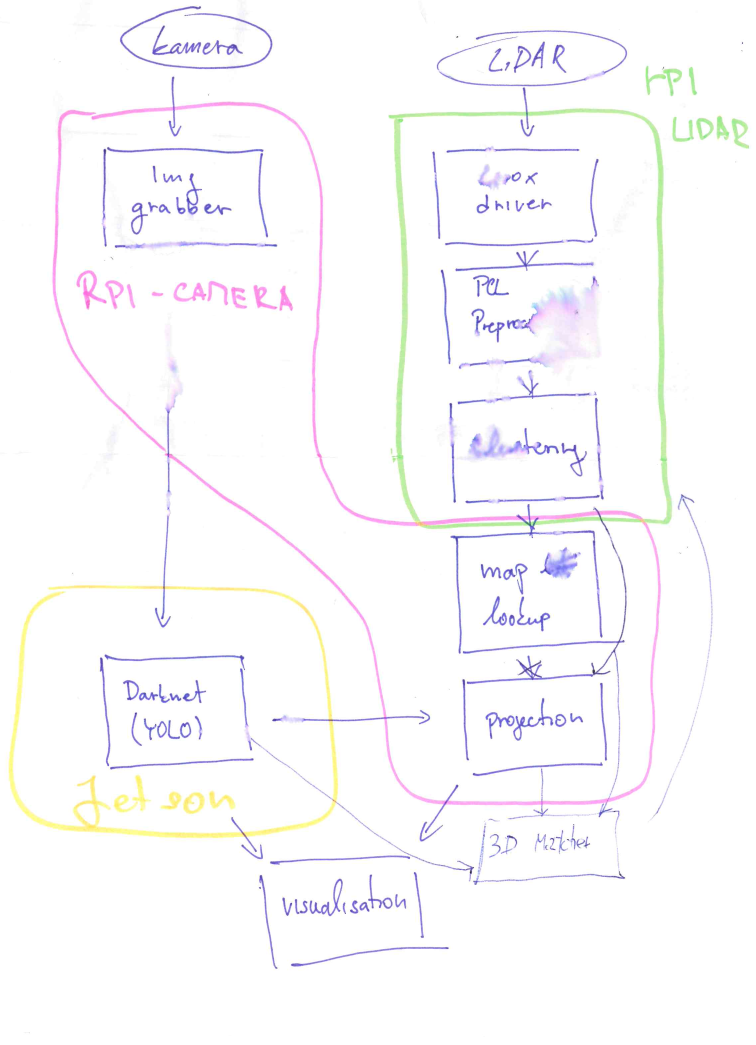 kamera
LIDAR
RPI
LIDAR
Img
grabber
driver
RPI - CAMERA
PCL
Clustering
map
lookup
Darknet
(YOLO)
projection
Jetson
3D Matcher
visualisation